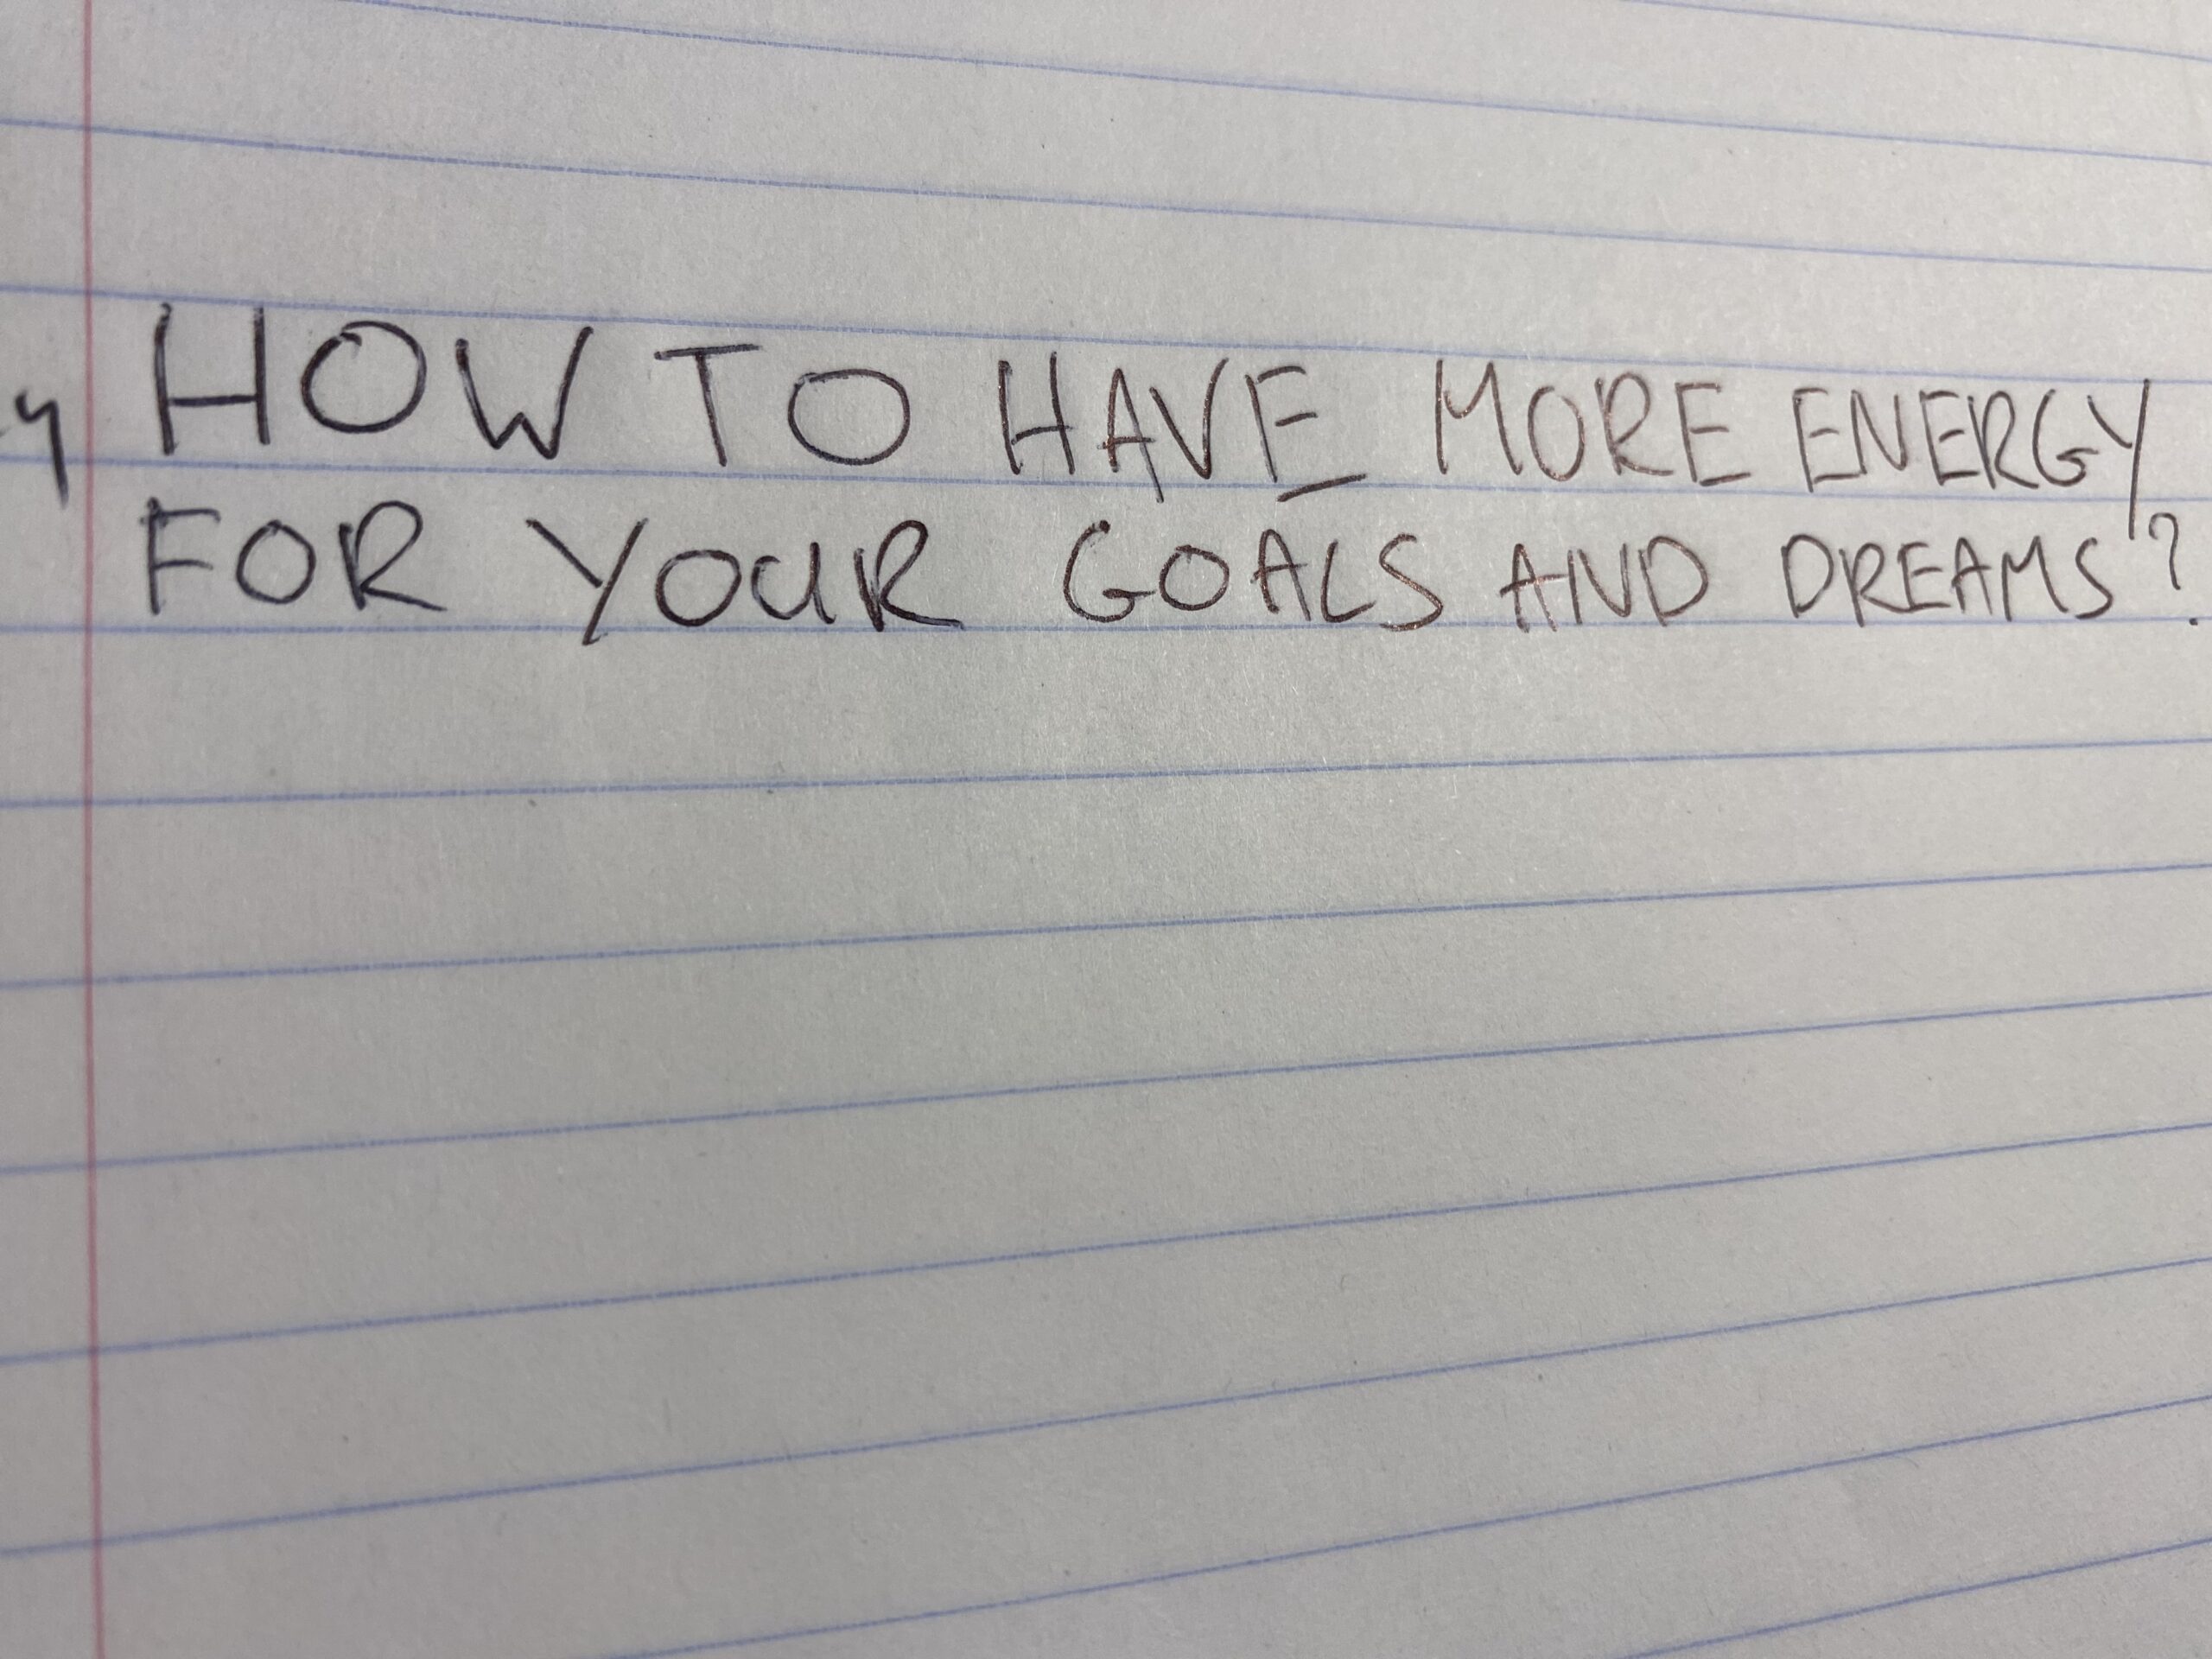 HOW TO HAVE MORE ENERGY
FOR YOUR GOALS AND DREAMS?